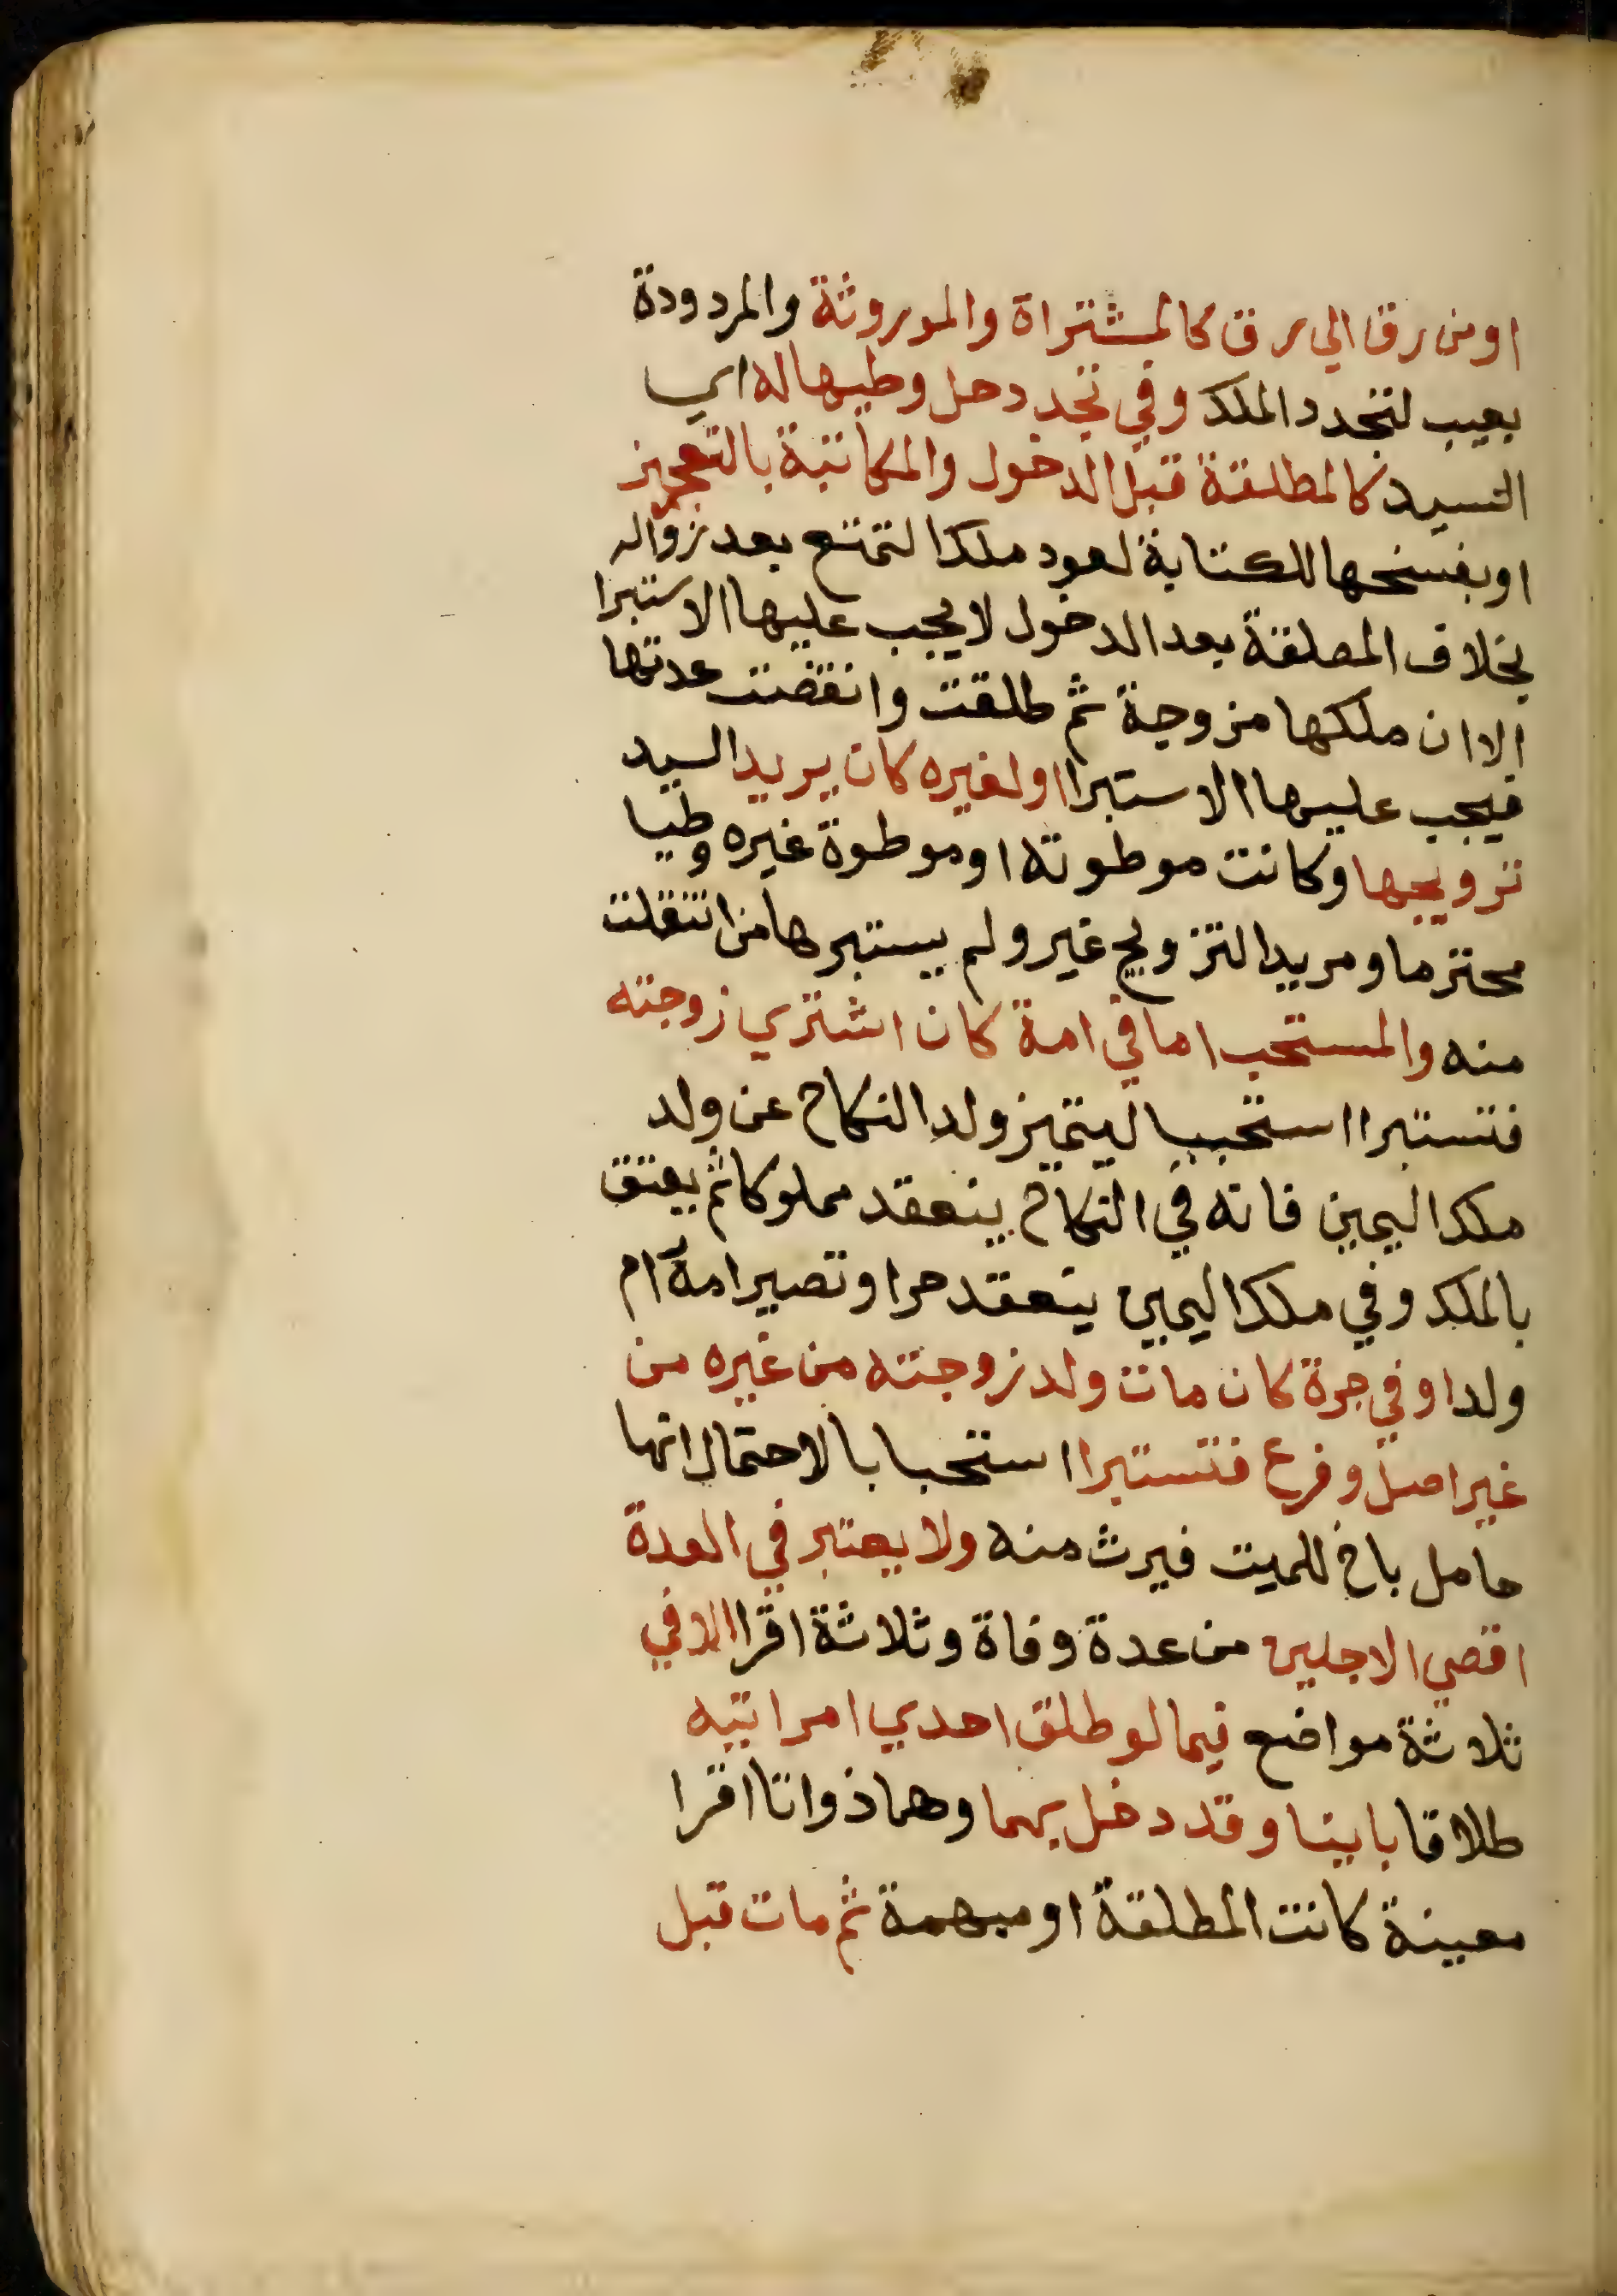 او من رق الي رق كالمشتراة والموروثة والمردودة
بعيب لتجدد الملك وفي تجدد حل وطيها له اي
السيد كالمطلقة قبل الدخول والمكاتبة بالتعجيز
او بفسخها للكتابة لعود ملك التمتع بعد زواله
بخلاف المطلقة بعد الدخول لا يجب عليها الاستبرا
الا ان ملكها مزوجة ثم طلقت وانقضت عدتها
فيجب عليها الاستبرا او لغيره كان يريد السيد
تزويجها وكانت موطوته او موطوة غيره وطيا
محترما ومريد التزويج غير ولم يستبرها من انتقلت
منه والمستحب اما في امة كان اشتري زوجته
فتستبرا استحبابا ليتميز ولد النكاح عن ولد
ملك اليمين فانه في النكاح ينعقد مملوكا ثم يعتق
بالملك وفي ملك اليمين ينعقد حرا وتصير امة ام
ولد او في حرة كان مات ولد زوجته من غيره من
غير اصل وفرع فتستبرا استحبابا لاحتمال انها
حامل باخ للميت فيرث منه ولا يعتبر في العدة
اقصي الاجلين من عدة وفاة وثلاثة اقرا الا في
ثلاثة مواضع فيما لو طلق احدي امراتيه
طلاقا باينا وقد دخل بهما وهما ذواتا اقرا
معينة كانت المطلقة او مبهمة ثم مات قبل